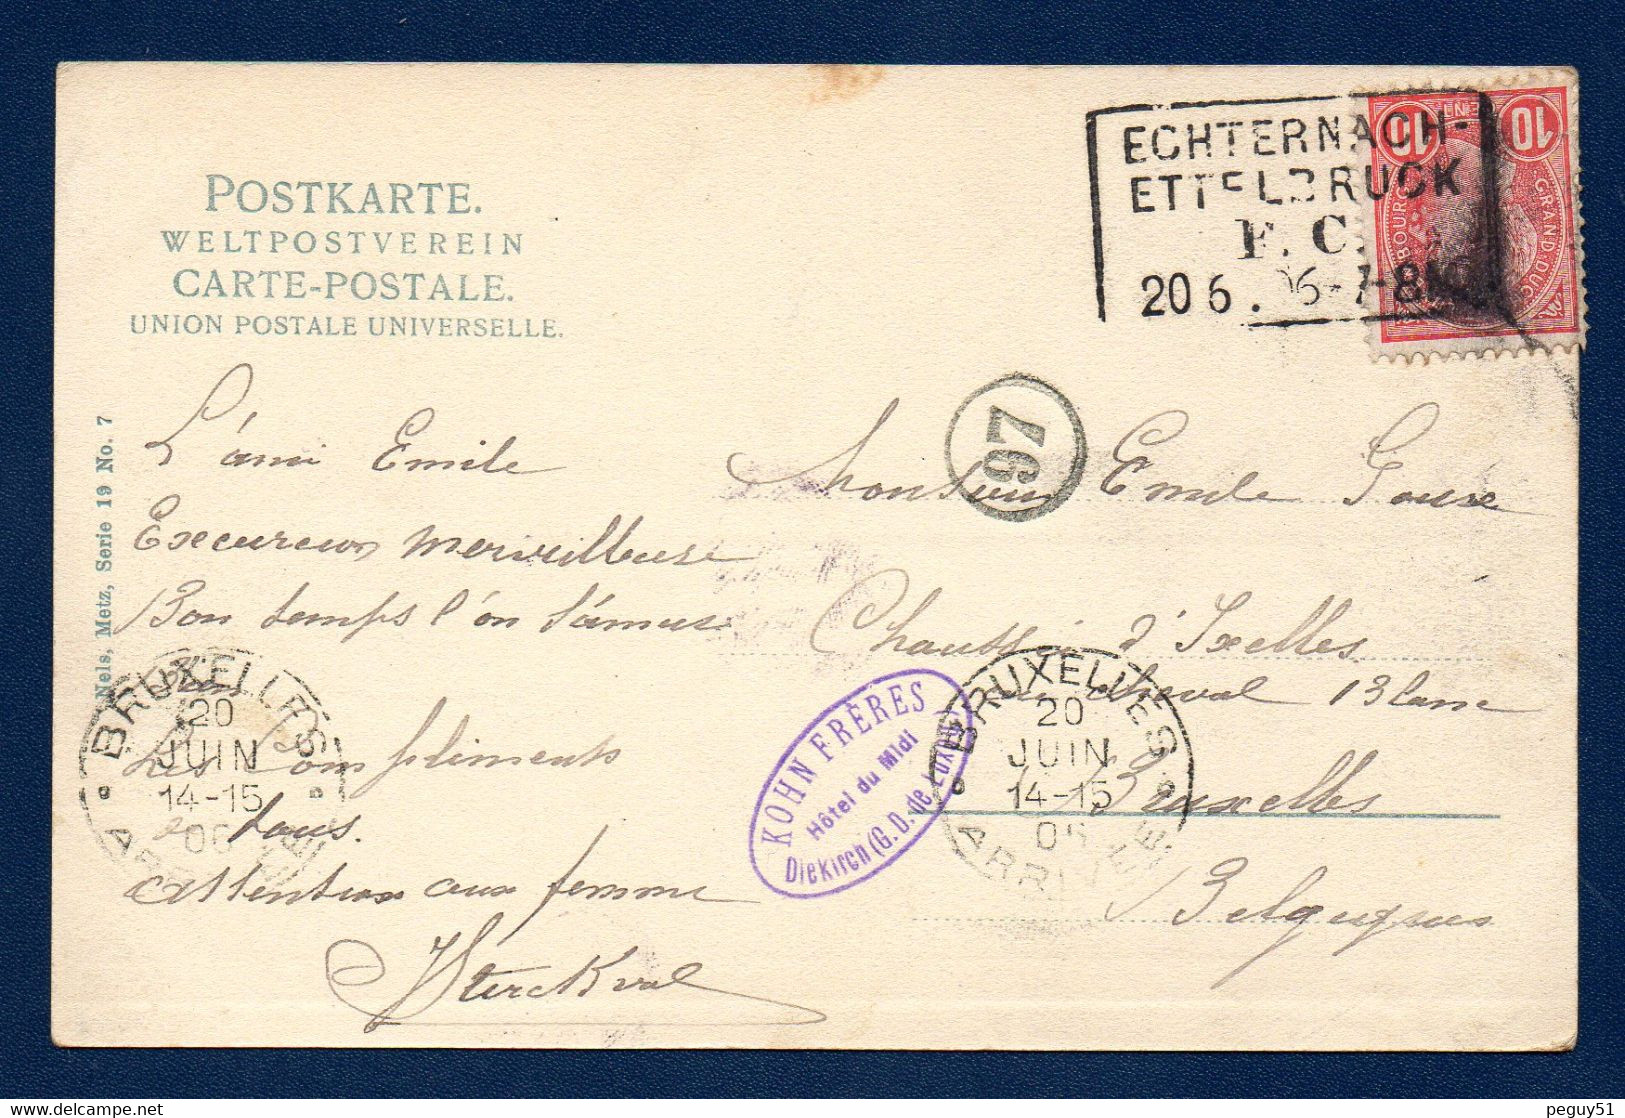 POSTKARTE.
WELTPOSTVEREIN
CARTE-POSTALE.
UNION POSTALE UNIVERSELLE.
Nels, Metz, Serie 19 No. 7
ECHTERNACH-
ETTELBRUCK
F. C.
20 6 . 06-7-8
10 10
GRAND DUCHÉ
97
L'ami Emile
Excurcion merveilleuse
Bon temps l'on s'amuse
bien
Les compliments
a tous.
attention aux femme
Sterckval
Monsieur Emile Goux
Chaussée d'Ixelles
au cheval Blanc
Bruxelles
Belgique
KOHN FRÈRES
Hôtel du Midi
Diekirch (G. D. de Luxbg)
BRUXELLES
20
JUIN
14-15
06
ARRIVEE
BRUXELLES
20
JUIN
14-15
06
ARRIVEE
peguy51